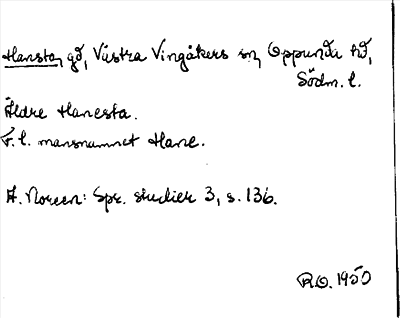 Hansta, gd, Västra Vingåkers sn, Oppunda hd,
Södm. l.
Äldre Hanesta.
F. l. mansnamnet Hane.
A. Noreen: Spr. studier 3, s. 136.
R.O. 1950